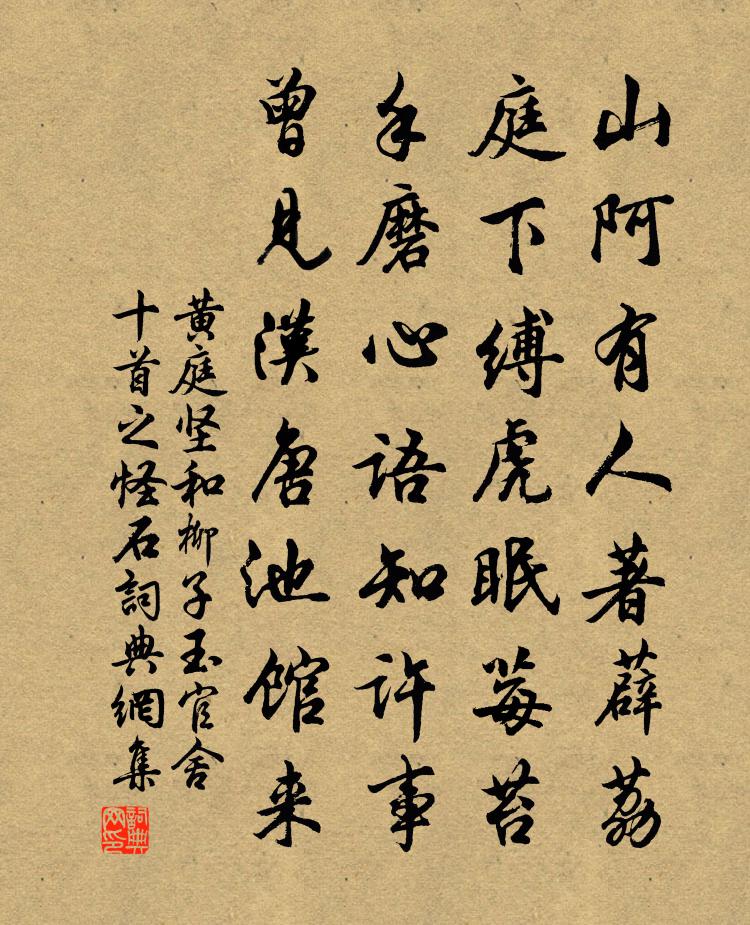 山阿有人著薜荔
庭下縛虎眠莓苔
手磨心語知許事
曾見漢唐池館来
黄庭坚和柳子玉官舍
十首之怪石詞典網集
詞典网印